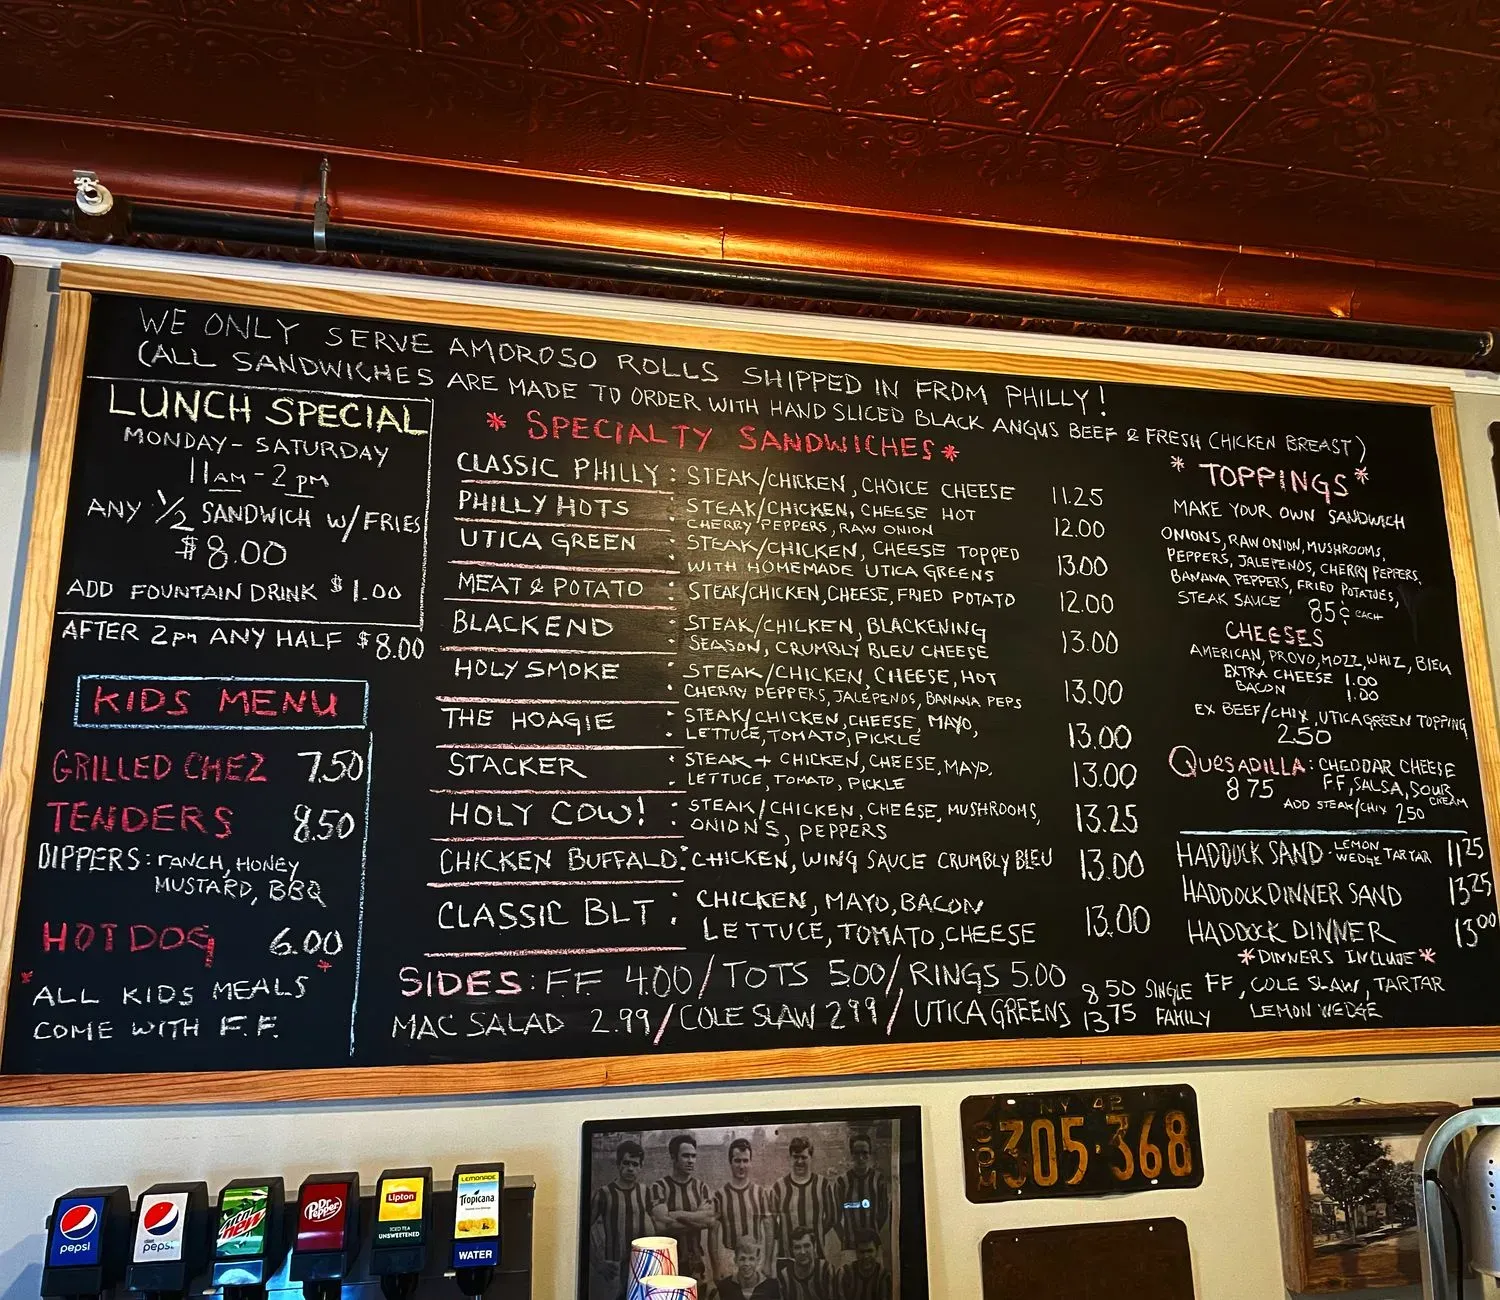 WE ONLY SERVE AMOROSO ROLLS SHIPPED IN FROM PHILLY!
(ALL SANDWICHES ARE MADE TO ORDER WITH HAND SLICED BLACK ANGUS BEEF & FRESH CHICKEN BREAST)
LUNCH SPECIAL
MONDAY - SATURDAY
11am - 2pm
ANY 1/2 SANDWICH W/FRIES
$8.00
ADD FOUNTAIN DRINK $1.00
AFTER 2pm ANY HALF $8.00
KIDS MENU
GRILLED CHEZ 7.50
TENDERS 8.50
DIPPERS: RANCH, HONEY
MUSTARD, BBQ
HOT DOG 6.00
* ALL KIDS MEALS *
COME WITH F.F.
* SPECIALTY SANDWICHES *
CLASSIC PHILLY: STEAK/CHICKEN, CHOICE CHEESE 11.25
PHILLY HOTS : STEAK/CHICKEN, CHEESE HOT
CHERRY PEPPERS, RAW ONION 12.00
UTICA GREEN : STEAK/CHICKEN, CHEESE TOPPED
WITH HOMEMADE UTICA GREENS 13.00
MEAT & POTATO : STEAK/CHICKEN, CHEESE, FRIED POTATO 12.00
BLACKEND : STEAK/CHICKEN, BLACKENING
SEASON, CRUMBLY BLEU CHEESE 13.00
HOLY SMOKE : STEAK/CHICKEN, CHEESE, HOT
CHERRY PEPPERS, JALEPENOS, BANANA PEPS 13.00
THE HOAGIE : STEAK/CHICKEN, CHEESE, MAYO,
LETTUCE, TOMATO, PICKLE 13.00
STACKER : STEAK + CHICKEN, CHEESE, MAYO,
LETTUCE, TOMATO, PICKLE 13.00
HOLY COW! : STEAK/CHICKEN, CHEESE, MUSHROOMS,
ONIONS, PEPPERS 13.25
CHICKEN BUFFALO: CHICKEN, WING SAUCE CRUMBLY BLEU 13.00
CLASSIC BLT : CHICKEN, MAYO, BACON
LETTUCE, TOMATO, CHEESE 13.00
SIDES: F.F. 4.00/TOTS 5.00/RINGS 5.00
MAC SALAD 2.99/COLE SLAW 2.99/UTICA GREENS 8.50 SINGLE
13.75 FAMILY
* TOPPINGS *
MAKE YOUR OWN SANDWICH
ONIONS, RAW ONION, MUSHROOMS,
PEPPERS, JALEPENOS, CHERRY PEPPERS,
BANANA PEPPERS, FRIED POTATOES,
STEAK SAUCE 85¢ EACH
CHEESES
AMERICAN, PROVO, MOZZ, WHIZ, BLEU
EXTRA CHEESE 1.00
BACON 1.00
EX BEEF/CHIX, UTICA GREEN TOPPING
2.50
QUESADILLA: CHEDDAR CHEESE
8.75 F.F, SALSA, SOUR CREAM
ADD STEAK/CHIX 2.50
HADDOCK SAND - LEMON WEDGE TARTAR 11.25
HADDOCK DINNER SAND 13.25
HADDOCK DINNER 13.00
* DINNERS INCLUDE *
FF, COLE SLAW, TARTAR
LEMON WEDGE
NY 42
COM 305·368
pepsi
diet pepsi
Mtn Dew
Dr Pepper
Lipton
ICED TEA
UNSWEETENED
LEMONADE
Tropicana
WATER